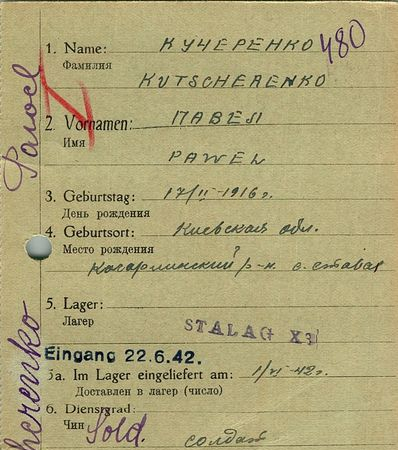 1. Name: КУЧЕРЕНКО 480
Фамилия KUTSCHERENKO
2. Vornamen: ПАВЕЛ
Имя
PAWEL
3. Geburtstag: 17/II-1916 г.
День рождения
4. Geburtsort: Киевская обл.
Место рождения ?
р-н с. Став
5. Lager:
Лагерь
STALAG X
Eingang 22.6.42.
5a. Im Lager eingeliefert am: 1/VI-42 г.
Доставлен в лагерь (число)
6. Dienstgrad:
Чин Sold. солдат
Pawel
herenko